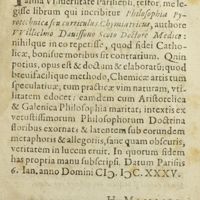 Parisiensi, testor, me le-
gisse librum qui inscribitur Philosophia Py-
rotechnica seu curriculus Chymiatricus, authore
VVillielmo Dauissono Scoto Doctore Medico:
nihilque in eo reperisse, quod fidei Catholi-
cæ, bonisue moribus sit contrarium. Quin
potius, opus est & doctum & elaboratũ; quod
breui facilique methodo, Chemicæ artis tum
speculatiuæ, tum practicæ vim naturam, vti-
litatem edocet: eamdem cum Aristotelica
& Galenica Philosophia maritat, interiis ex
vetustissimorum Philosophorum Doctrina
floribus exornat: & latentem sub eorumdem
metaphoris & allegoriis, sane quam obscuris,
veritatem in lucem eruit. In quorum fidem
has propria manu subscripsi. Datum Parisiis
6. Ian. anno Domini CIↃ. IↃC. XXXV.